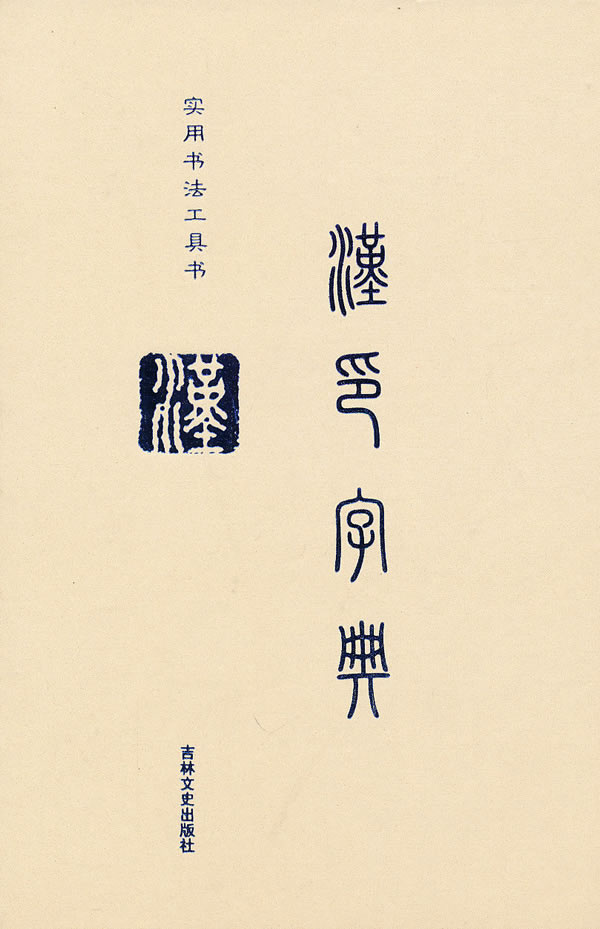 漢印字典
实用书法工具书
漢
吉林文史出版社